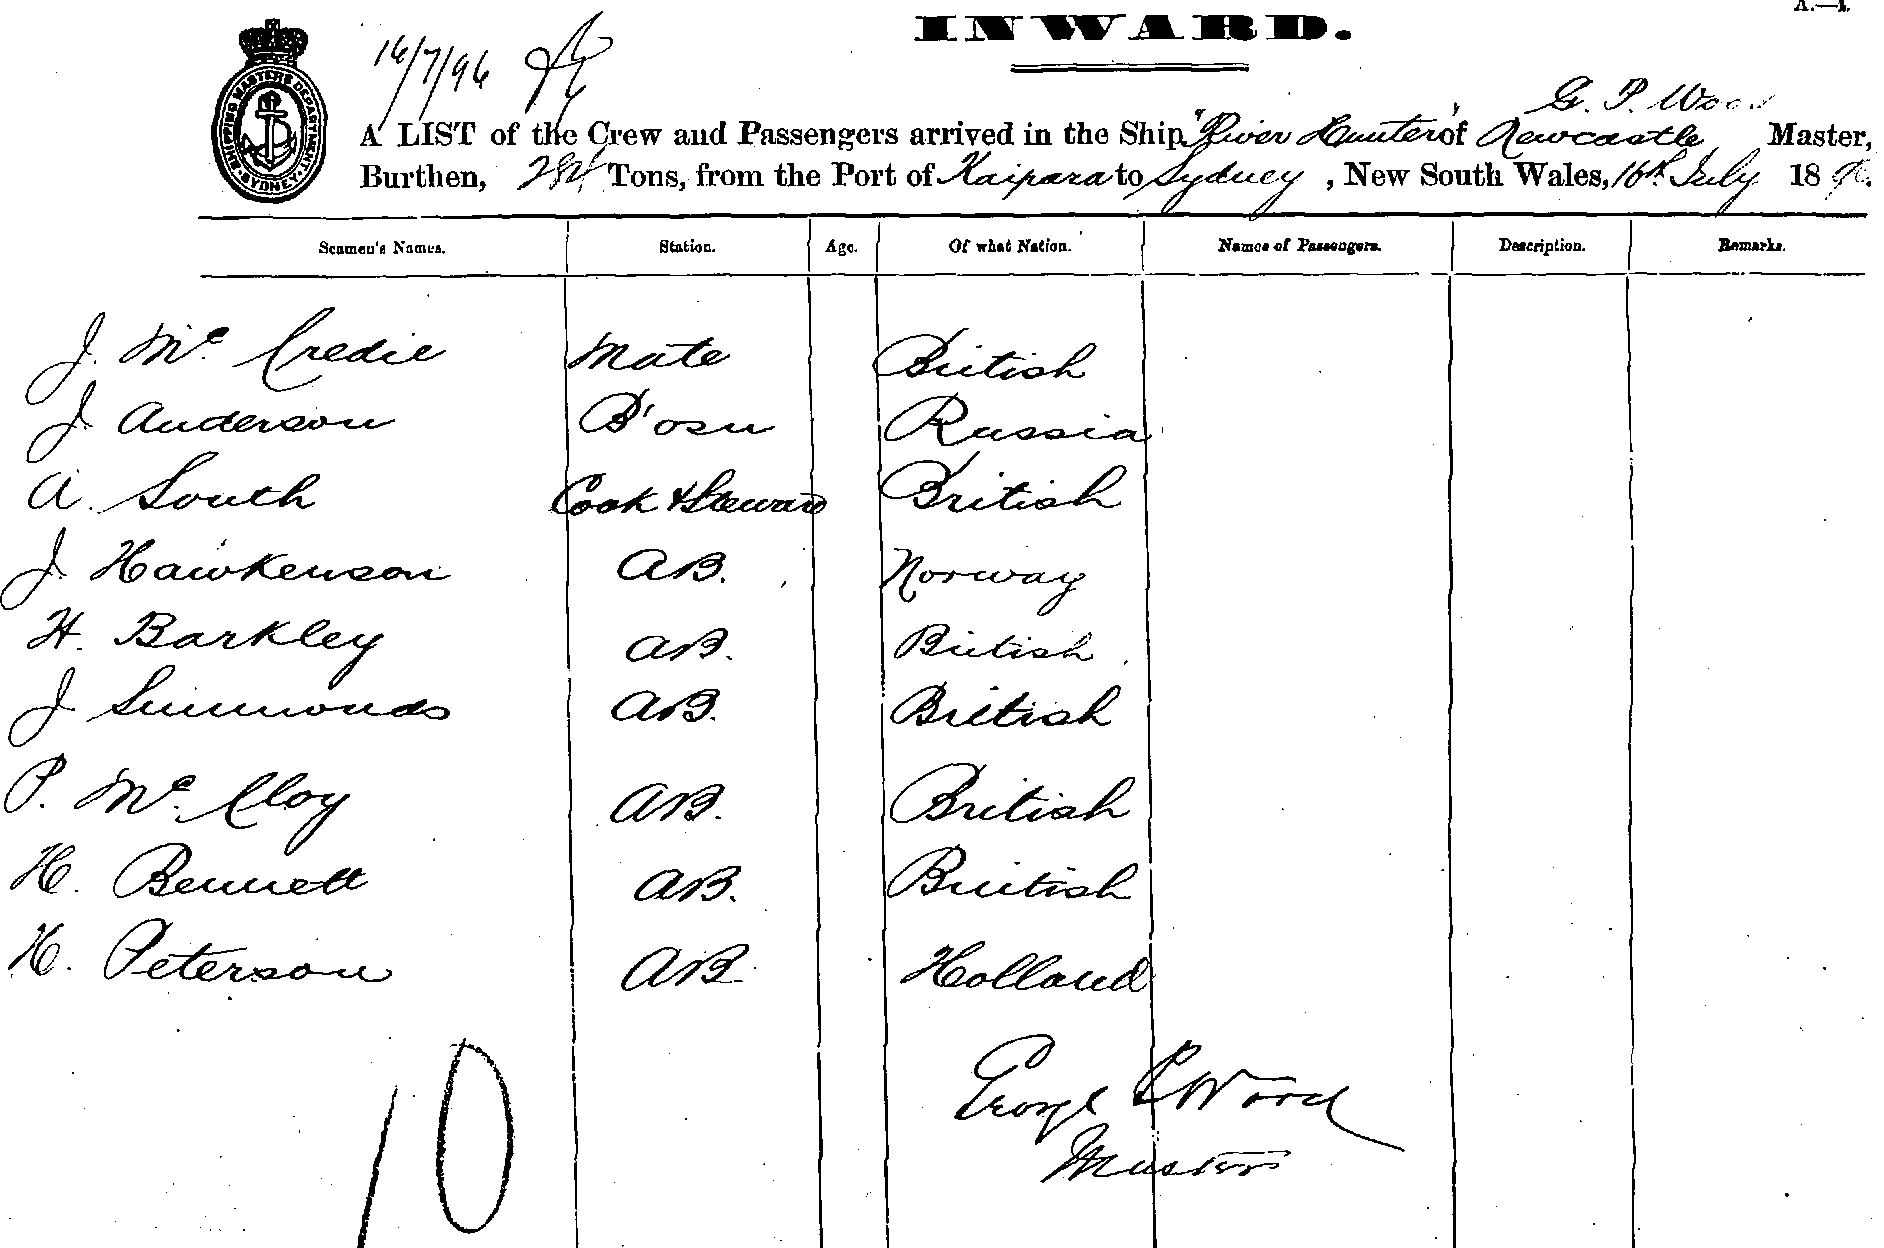 A.—1.
INWARD.
16/7/96
SHIPPING MASTERS DEPARTMENT
SYDNEY
G. P. Wood
A LIST of the Crew and Passengers arrived in the Ship "River Hunter" of Newcastle Master,
Burthen, Tons, from the Port of Kaipara to Sydney, New South Wales, 16th July 18
Seamen's Names. Station. Age. Of what Nation. Names of Passengers. Description. Remarks.
J. Mc Credie Mate British
J Anderson B'osn Russia
A. South Cook & Steward British
J. Hawkenson AB. Norway
H. Barkley AB. British
J Simmonds AB. British
P. Mc Cloy AB. British
H. Bennett AB. British
H. Peterson AB. Holland
George P Wood
Master
10